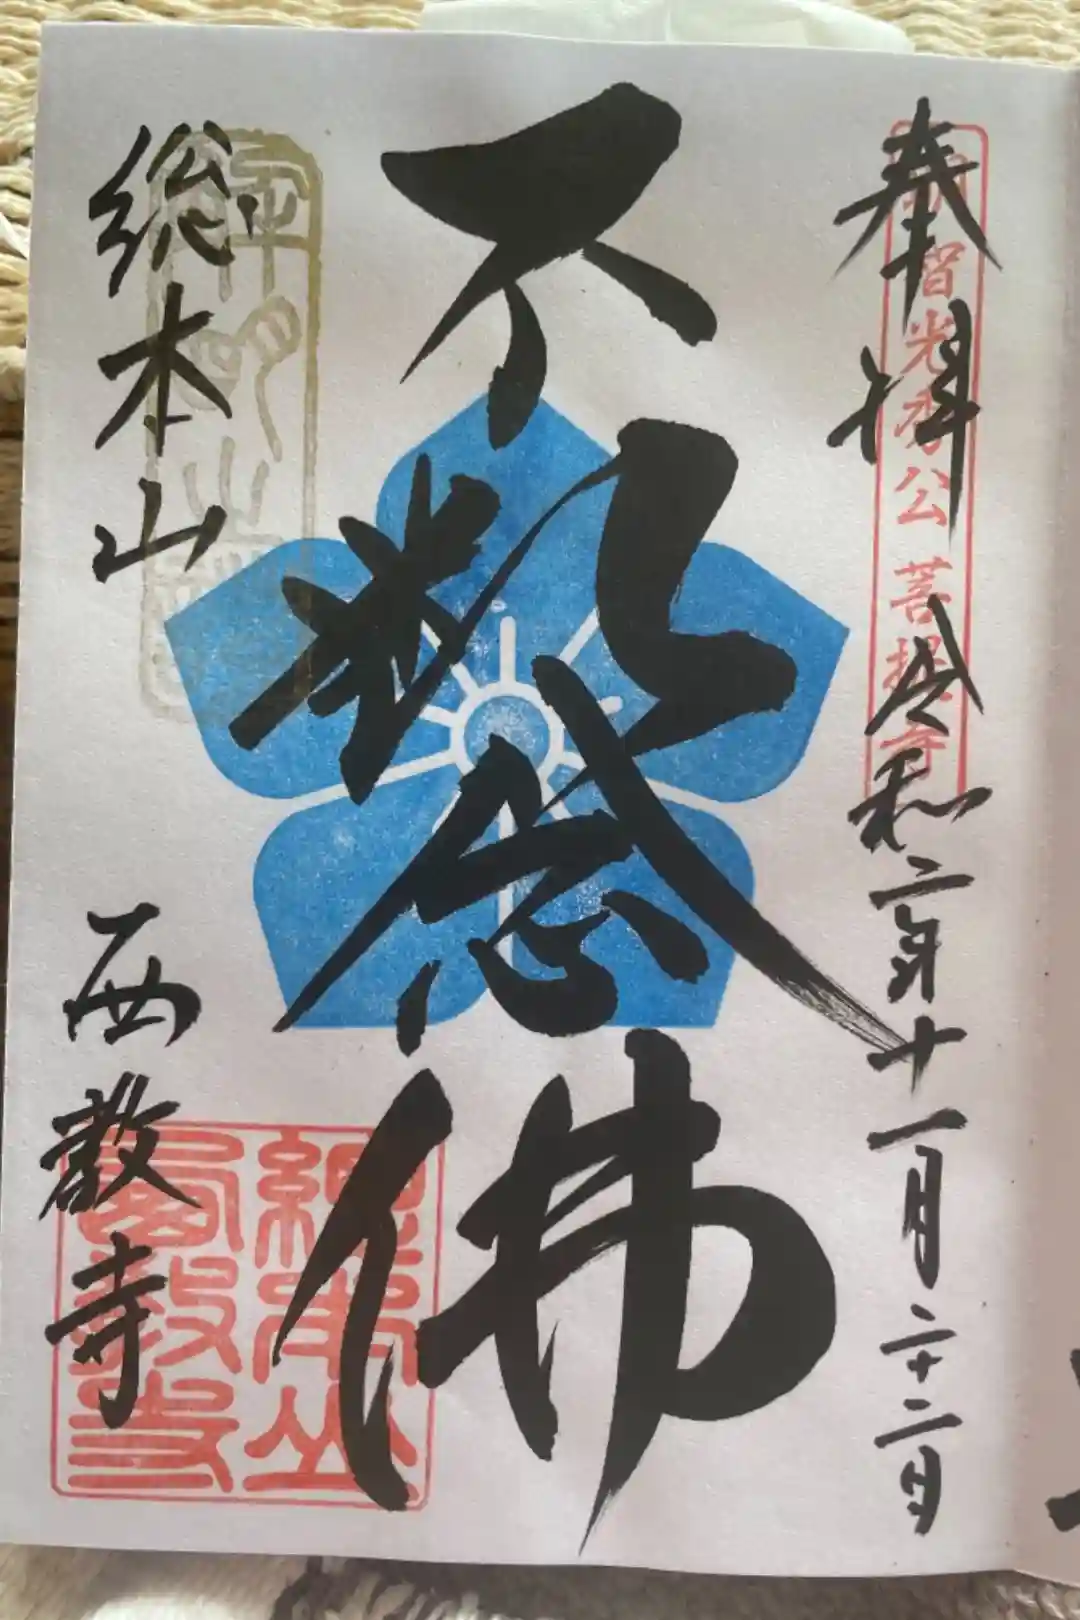 奉拝 令和二年十一月二十二日
明智光秀公菩提寺
不断念佛
総本山 西教寺
總本山
西教寺